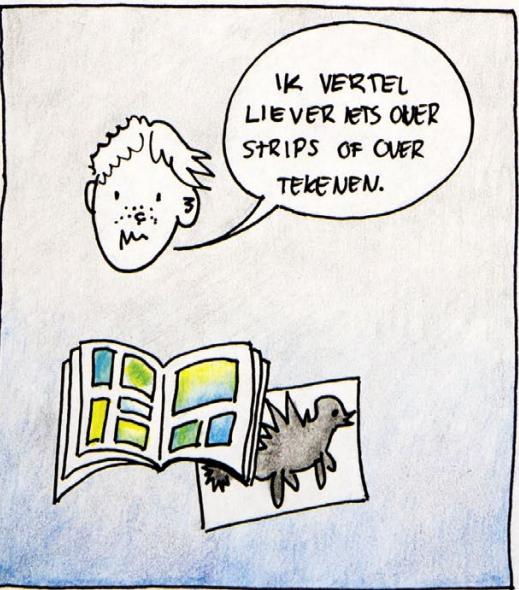 IK VERTEL
LIEVER IETS OVER
STRIPS OF OVER
TEKENEN.